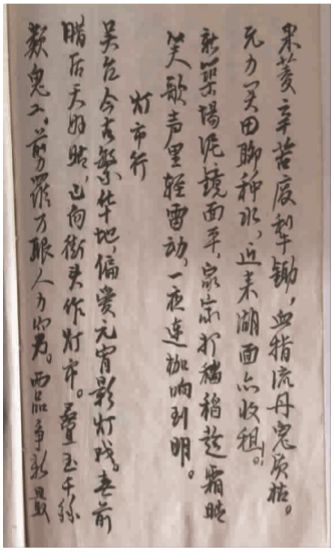 采菱辛苦废犁锄，血指流丹鬼质枯。
无力买田聊种水，近来湖面亦收租。
新筑场泥镜面平，家家打稻趁霜晴
笑歌声里轻雷动，一夜连枷响到明。
灯市行
吴台今古繁华地，偏爱元宵影灯戏。春前
腊后天好晴，已向街头作灯市。叠玉千丝
类鬼工，剪罗万眼人力穷。两品争新最